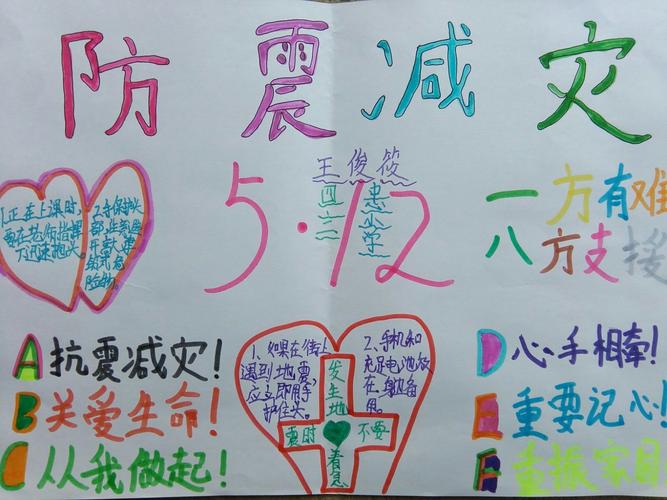 防震减灾
王俊筱
四.二
惠小学
5·12
一方有难
八方支援
1.正在上课时,
要在老师指挥
下迅速抱头.
2.予保护头
部,注意避
开
险物。
A 抗震减灾!
B 关爱生命!
C 从我做起!
1、如果在街上
遇到地震,
应立即用手
护住头。
2、手机和
充足电池放
在身边备
用。
发生地
震时 不要
着急
D 心手相牵!
E 重要记心!
F 重振家园